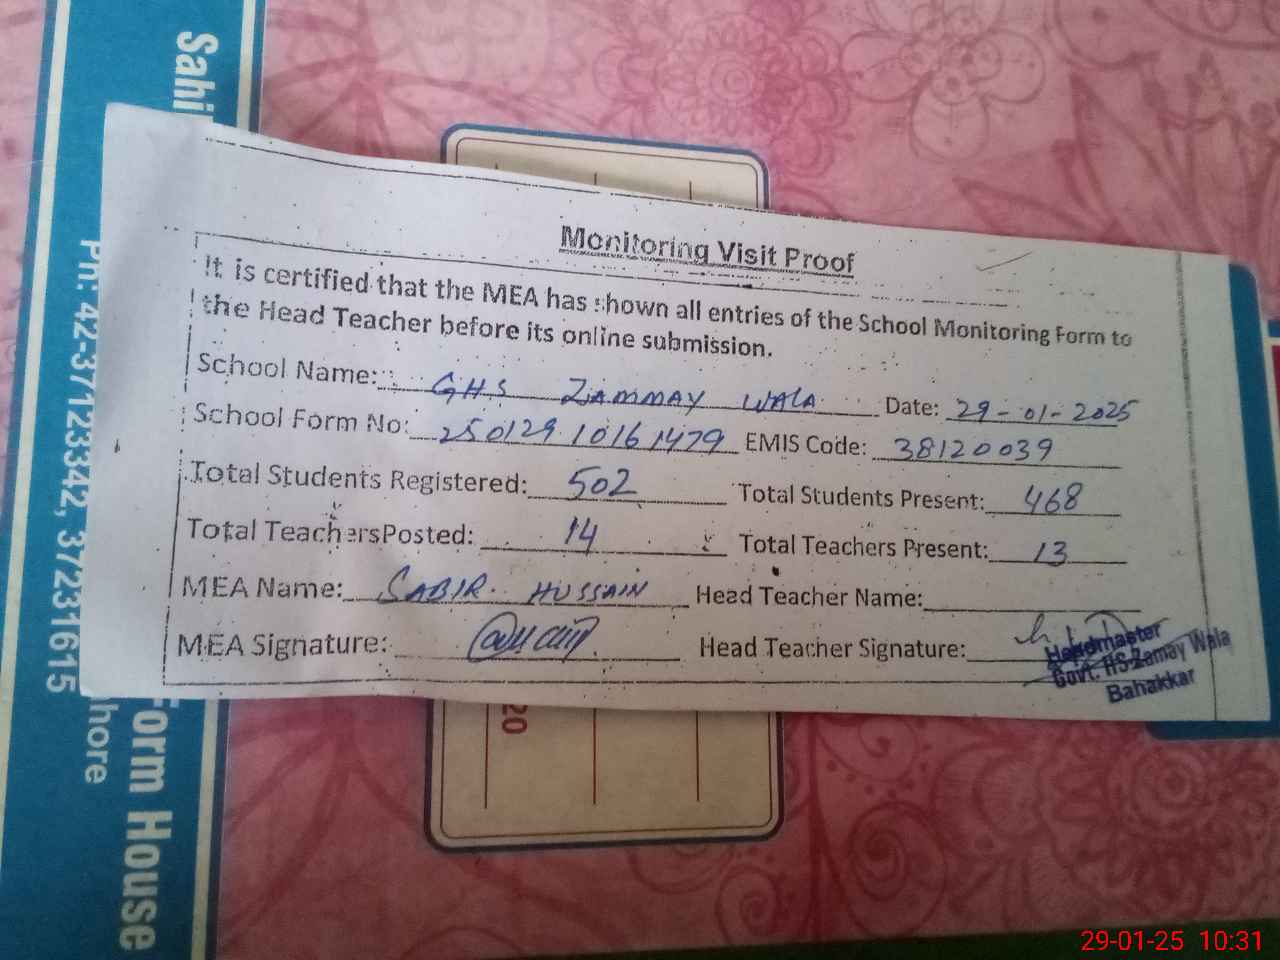 Monitoring Visit Proof
It is certified that the MEA has shown all entries of the School Monitoring Form to
the Head Teacher before its online submission.
School Name: GHS ZAMMAY WALA Date: 29-01-2025
School Form No: 25012910161479 EMIS Code: 38120039
Total Students Registered: 502 Total Students Present: 468
Total TeachersPosted: 14 Total Teachers Present: 13
MEA Name: SABIR HUSSAIN Head Teacher Name:
MEA Signature: Head Teacher Signature:
Headmaster
Govt. HS Zamay Wala
Bahakkar
Sahi
Ph: 42-37123342, 37231615
Form House
hore
20
29-01-25 10:31